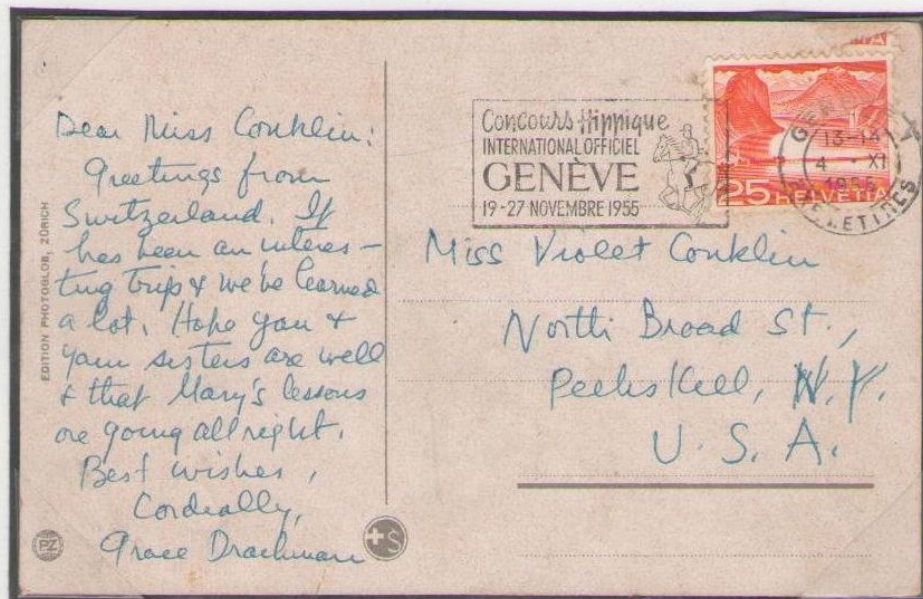 Dear Miss Conklin:
Greetings from
Switzerland. It
has been an interes-
ting trip & we've learned
a lot. Hope you &
your sisters are well
& that Mary's lessons
are going all right.
Best wishes,
Cordially,
Grace Drachman
EDITION PHOTOGLOB, ZÜRICH
PZ
S
Concours Hippique
INTERNATIONAL OFFICIEL
GENÈVE
19-27 NOVEMBRE 1955
25 HELVETIA
13-14
4 XI
1955
Miss Violet Conklin
North Broad St.,
Peekskill, N.Y.
U.S.A.